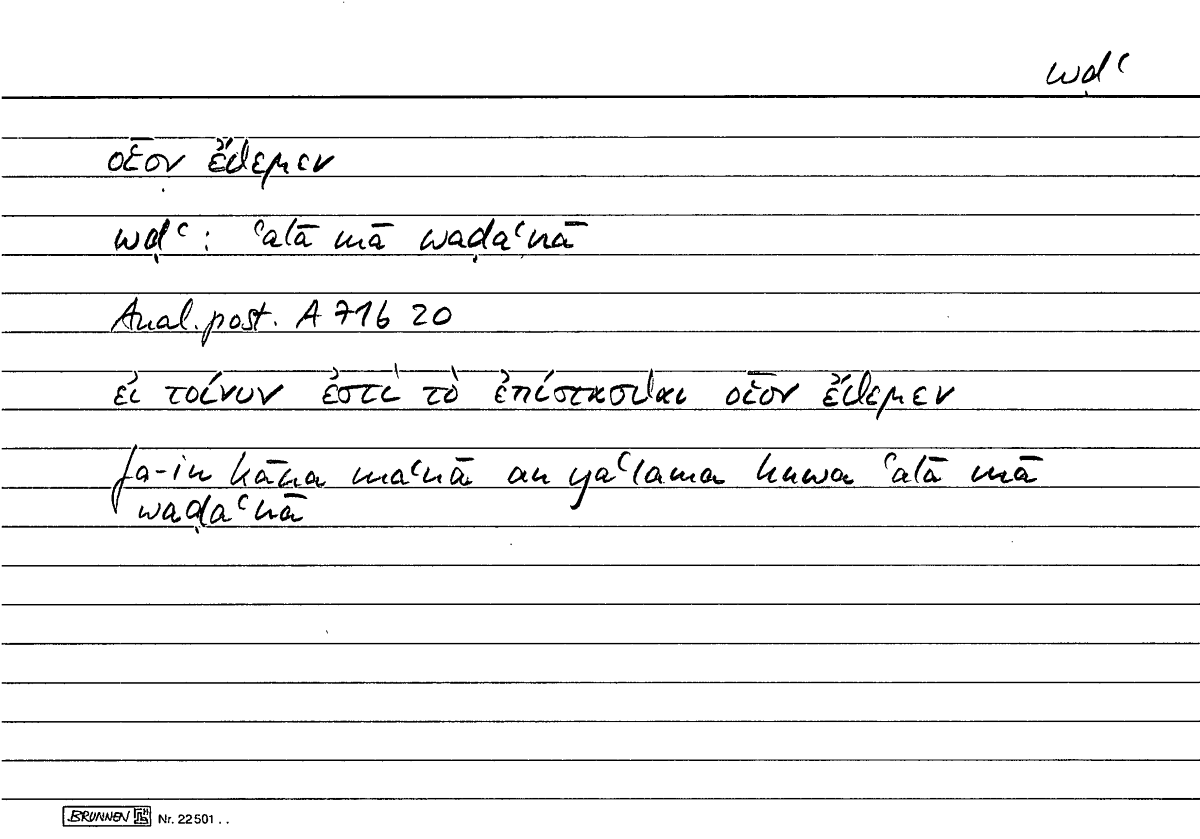 wḍʿ
οἷον ἔθεμεν
wḍʿ: ʿalā mā waḍaʿnā
Anal. post. A 71b 20
εἰ τοίνυν ἐστὶ τὸ ἐπίστασθαι οἷον ἔθεμεν
fa-in kāna maʿnā an yaʿlama huwa ʿalā mā
waḍaʿnā
BRUNNEN Nr. 22501 . .